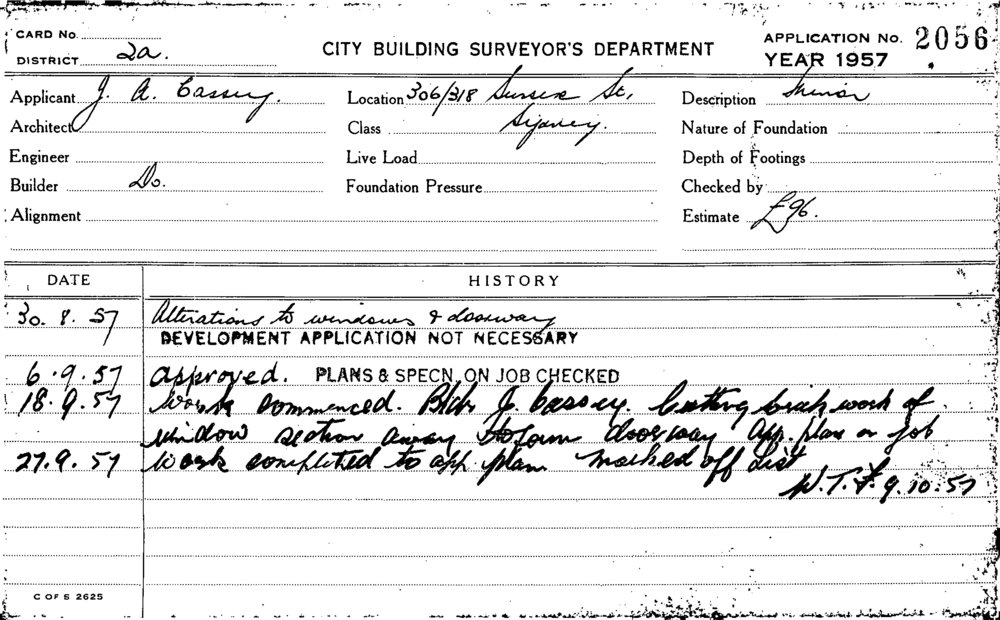 CARD No.
DISTRICT 2a.
CITY BUILDING SURVEYOR'S DEPARTMENT
APPLICATION No. 2056
YEAR 1957
Applicant J. A. Cassey. Location 306/318 Sussex St, Description Minor
Architect Class Sydney. Nature of Foundation
Engineer Live Load Depth of Footings
Builder Do. Foundation Pressure Checked by
Alignment Estimate £96.
DATE HISTORY
30. 8. 57 Alterations to windows & doorway
DEVELOPMENT APPLICATION NOT NECESSARY
6.9.57 approved. PLANS & SPECN. ON JOB CHECKED
18.9.57 Work commenced. Bldr J. Cassey. Cutting brick work of
window section away to form doorway App. plan on job
27.9.57 Work completed to app plan marked off List
W.T.F. 9.10.57
C OF S 2625